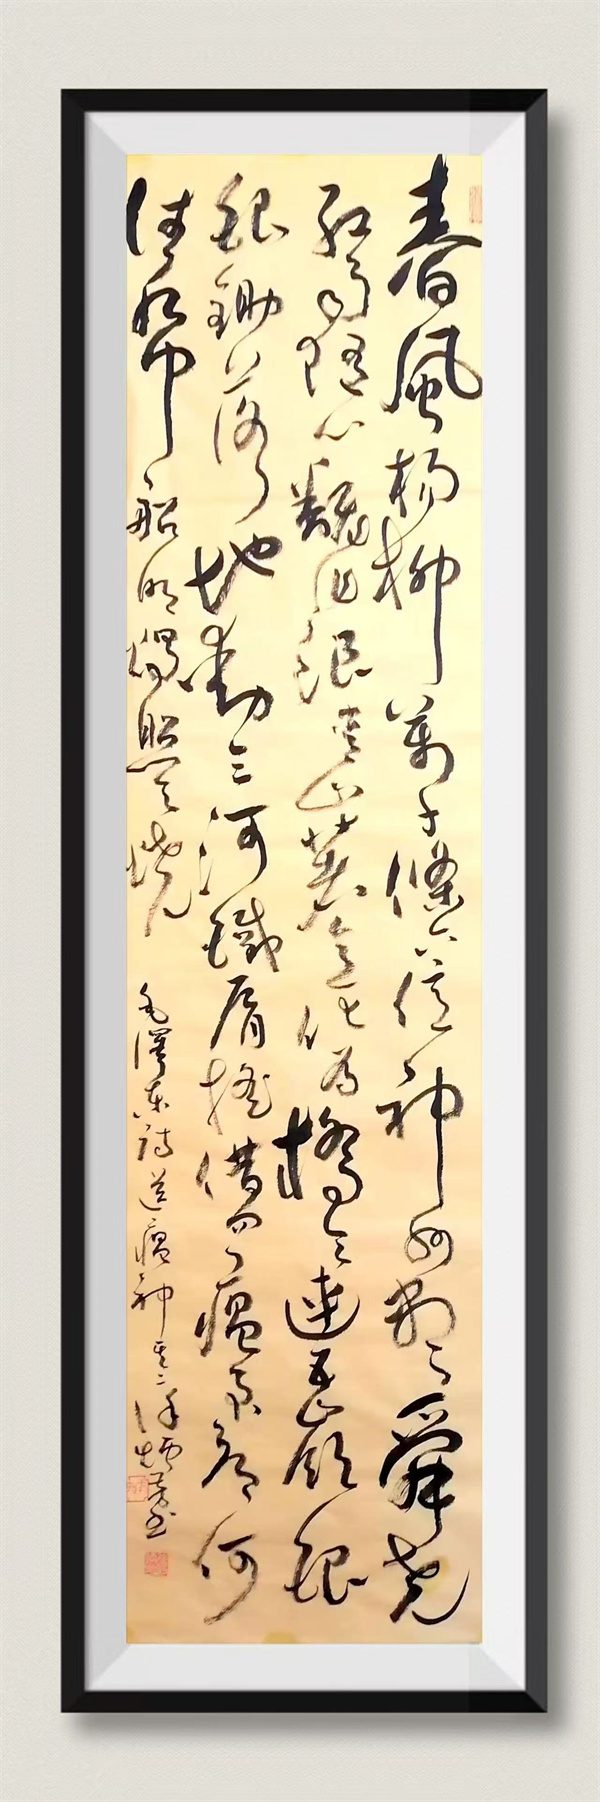 春風楊柳萬千條六億神州盡舜堯
紅雨随心翻作浪青山着意化为橋天連五嶺銀
銀鋤落地動三河鐵臂摇借問瘟君欲何
往紙船明燭照天燒
毛澤东詩送瘟神其二